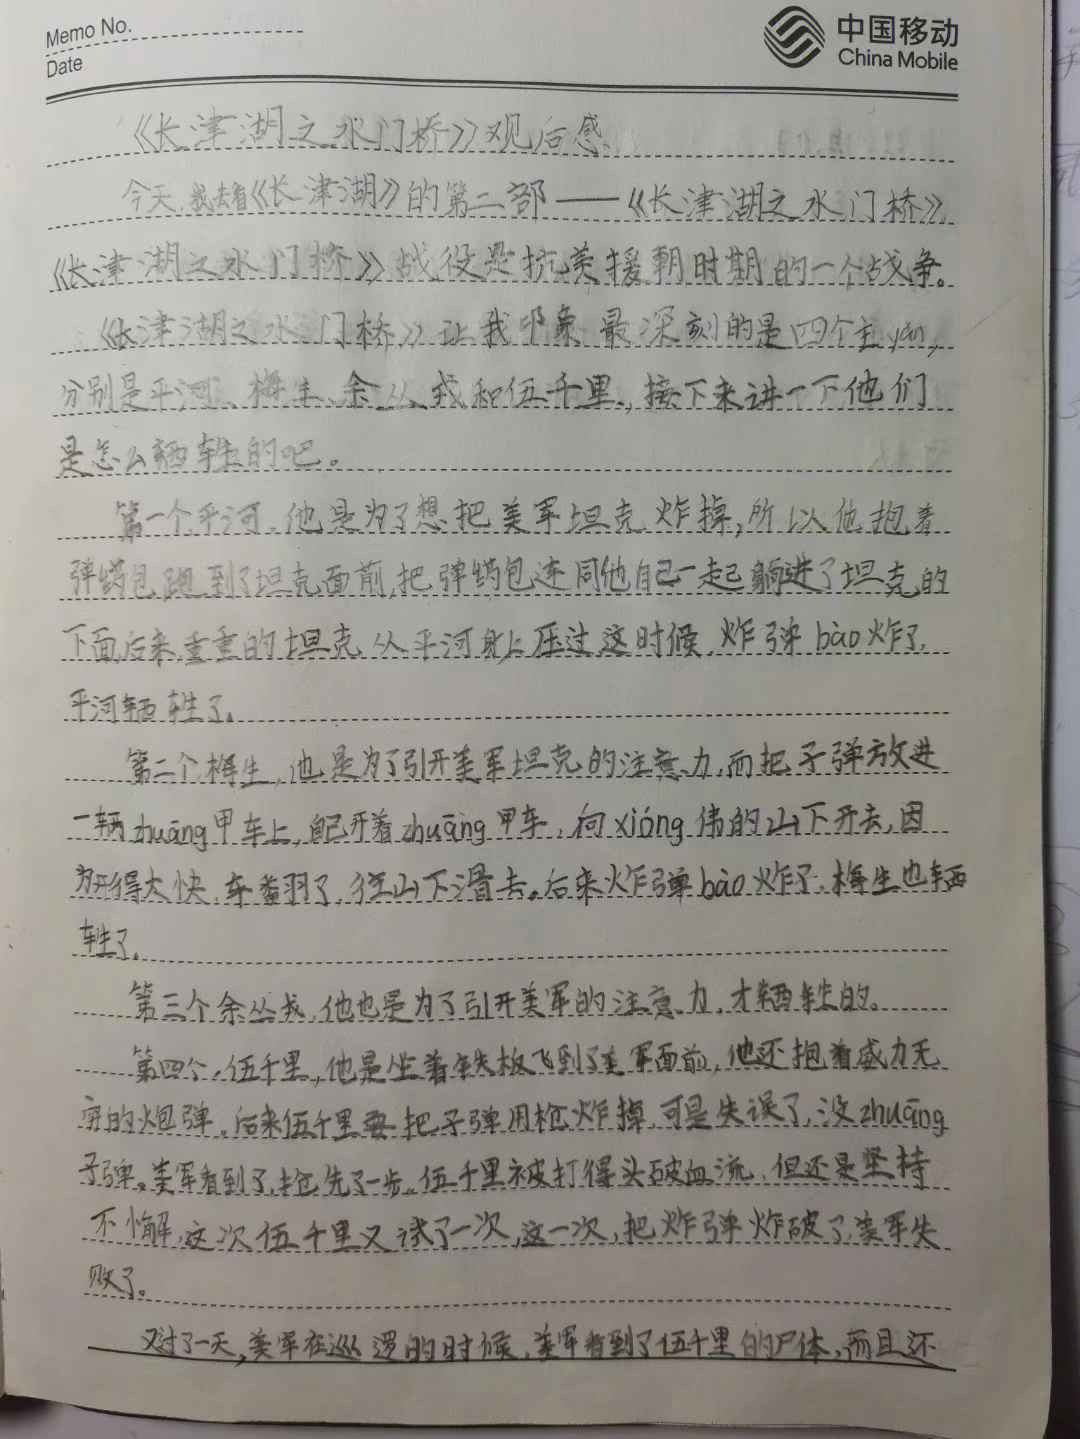 Memo No.
Date
中国移动
China Mobile
《长津湖之水门桥》观后感
今天,我去看《长津湖》的第二部——《长津湖之水门桥》,
《长津湖之水门桥》战役是抗美援朝时期的一个战争。
《长津湖之水门桥》让我印象最深刻的是四个主yǎn,
分别是平河、梅生、余丛戎和伍千里,接下来讲一下他们
是怎么牺牲的吧。
第一个平河,他是为了想把美军坦克炸掉,所以他抱着
弹药包跑到了坦克面前,把弹药包连同他自己一起躺进了坦克的
下面,后来,重重的坦克从平河身上压过,这时候,炸弹bào炸了,
平河牺牲了。
第二个梅生,他是为了引开美军坦克的注意力,而把子弹放进
一辆zhuāng甲车上,自己开着zhuāng甲车,向xióng伟的山下开去,因
为开得太快,车翻了,往山下滑去。后来炸弹bào炸了,梅生也牺
牲了。
第三个余丛戎,他也是为了引开美军的注意力,才牺牲的。
第四个,伍千里,他是坐着铁板飞到了美军面前,他还抱着威力无
穷的炮弹。后来伍千里要把子弹用枪炸掉,可是失误了,没zhuāng
子弹。美军看到了,抢先了一步。伍千里被打得头破血流,但还是坚持
不懈,这次伍千里又试了一次,这一次,把炸弹炸破了,美军失
败了。
又过了一天,美军在巡逻的时候,美军看到了伍千里的尸体,而且还